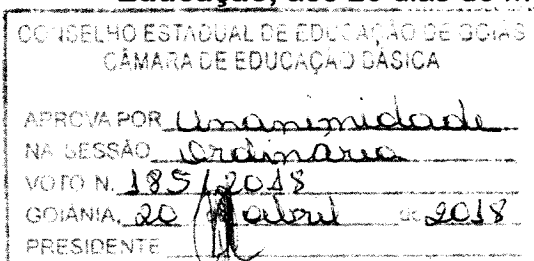 CONSELHO ESTADUAL DE EDUCAÇÃO DE GOIÁS
CÂMARA DE EDUCAÇÃO BÁSICA
APROVA POR Unanimidade
NA SESSÃO Ordinária
VOTO N. 185/2018
GOIÂNIA, 20 abril de 2018
PRESIDENTE